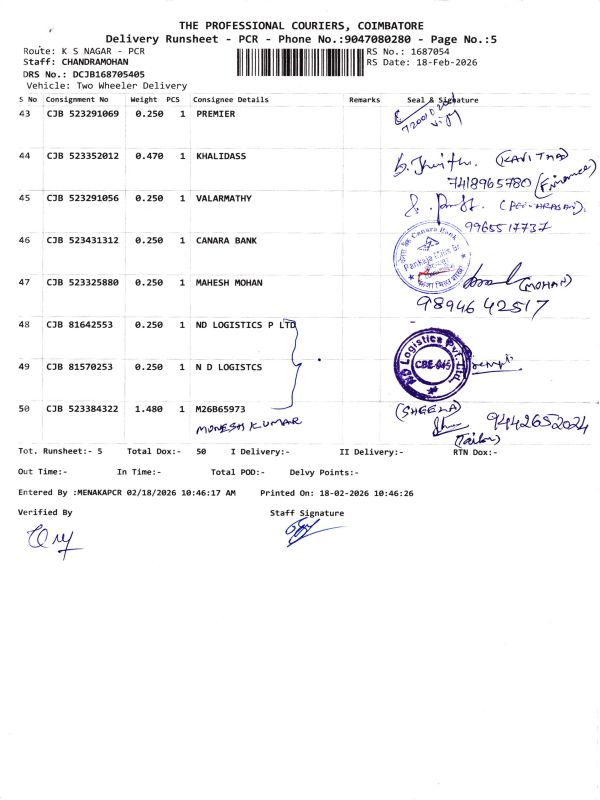 THE PROFESSIONAL COURIERS, COIMBATORE
Delivery Runsheet - PCR - Phone No.:9047080280 - Page No.:5
Route: K S NAGAR - PCR
RS No.: 1687054
Staff: CHANDRAMOHAN
RS Date: 18-Feb-2026
DRS No.: DCJB168705405
Vehicle: Two Wheeler Delivery
S No Consignment No Weight PCS Consignee Details Remarks Seal & Signature
43 CJB 523291069 0.250 1 PREMIER
44 CJB 523352012 0.470 1 KHALIDASS
(KAVITHA)
7418965780 (Finance)
45 CJB 523291056 0.250 1 VALARMATHY
9965517737
46 CJB 523431312 0.250 1 CANARA BANK
Canara Bank
47 CJB 523325880 0.250 1 MAHESH MOHAN
(MOHAN)
9894642517
48 CJB 81642553 0.250 1 ND LOGISTICS P LTD
49 CJB 81570253 0.250 1 N D LOGISTCS
ND Logistics Pvt. Ltd.
CBE-045
50 CJB 523384322 1.480 1 M26B65973
MONESH KUMAR
(SHEELA)
9442652024
(Tailor)
Tot. Runsheet:- 5 Total Dox:- 50 I Delivery:- II Delivery:- RTN Dox:-
Out Time:- In Time:- Total POD:- Delvy Points:-
Entered By :MENAKAPCR 02/18/2026 10:46:17 AM Printed On: 18-02-2026 10:46:26
Verified By Staff Signature